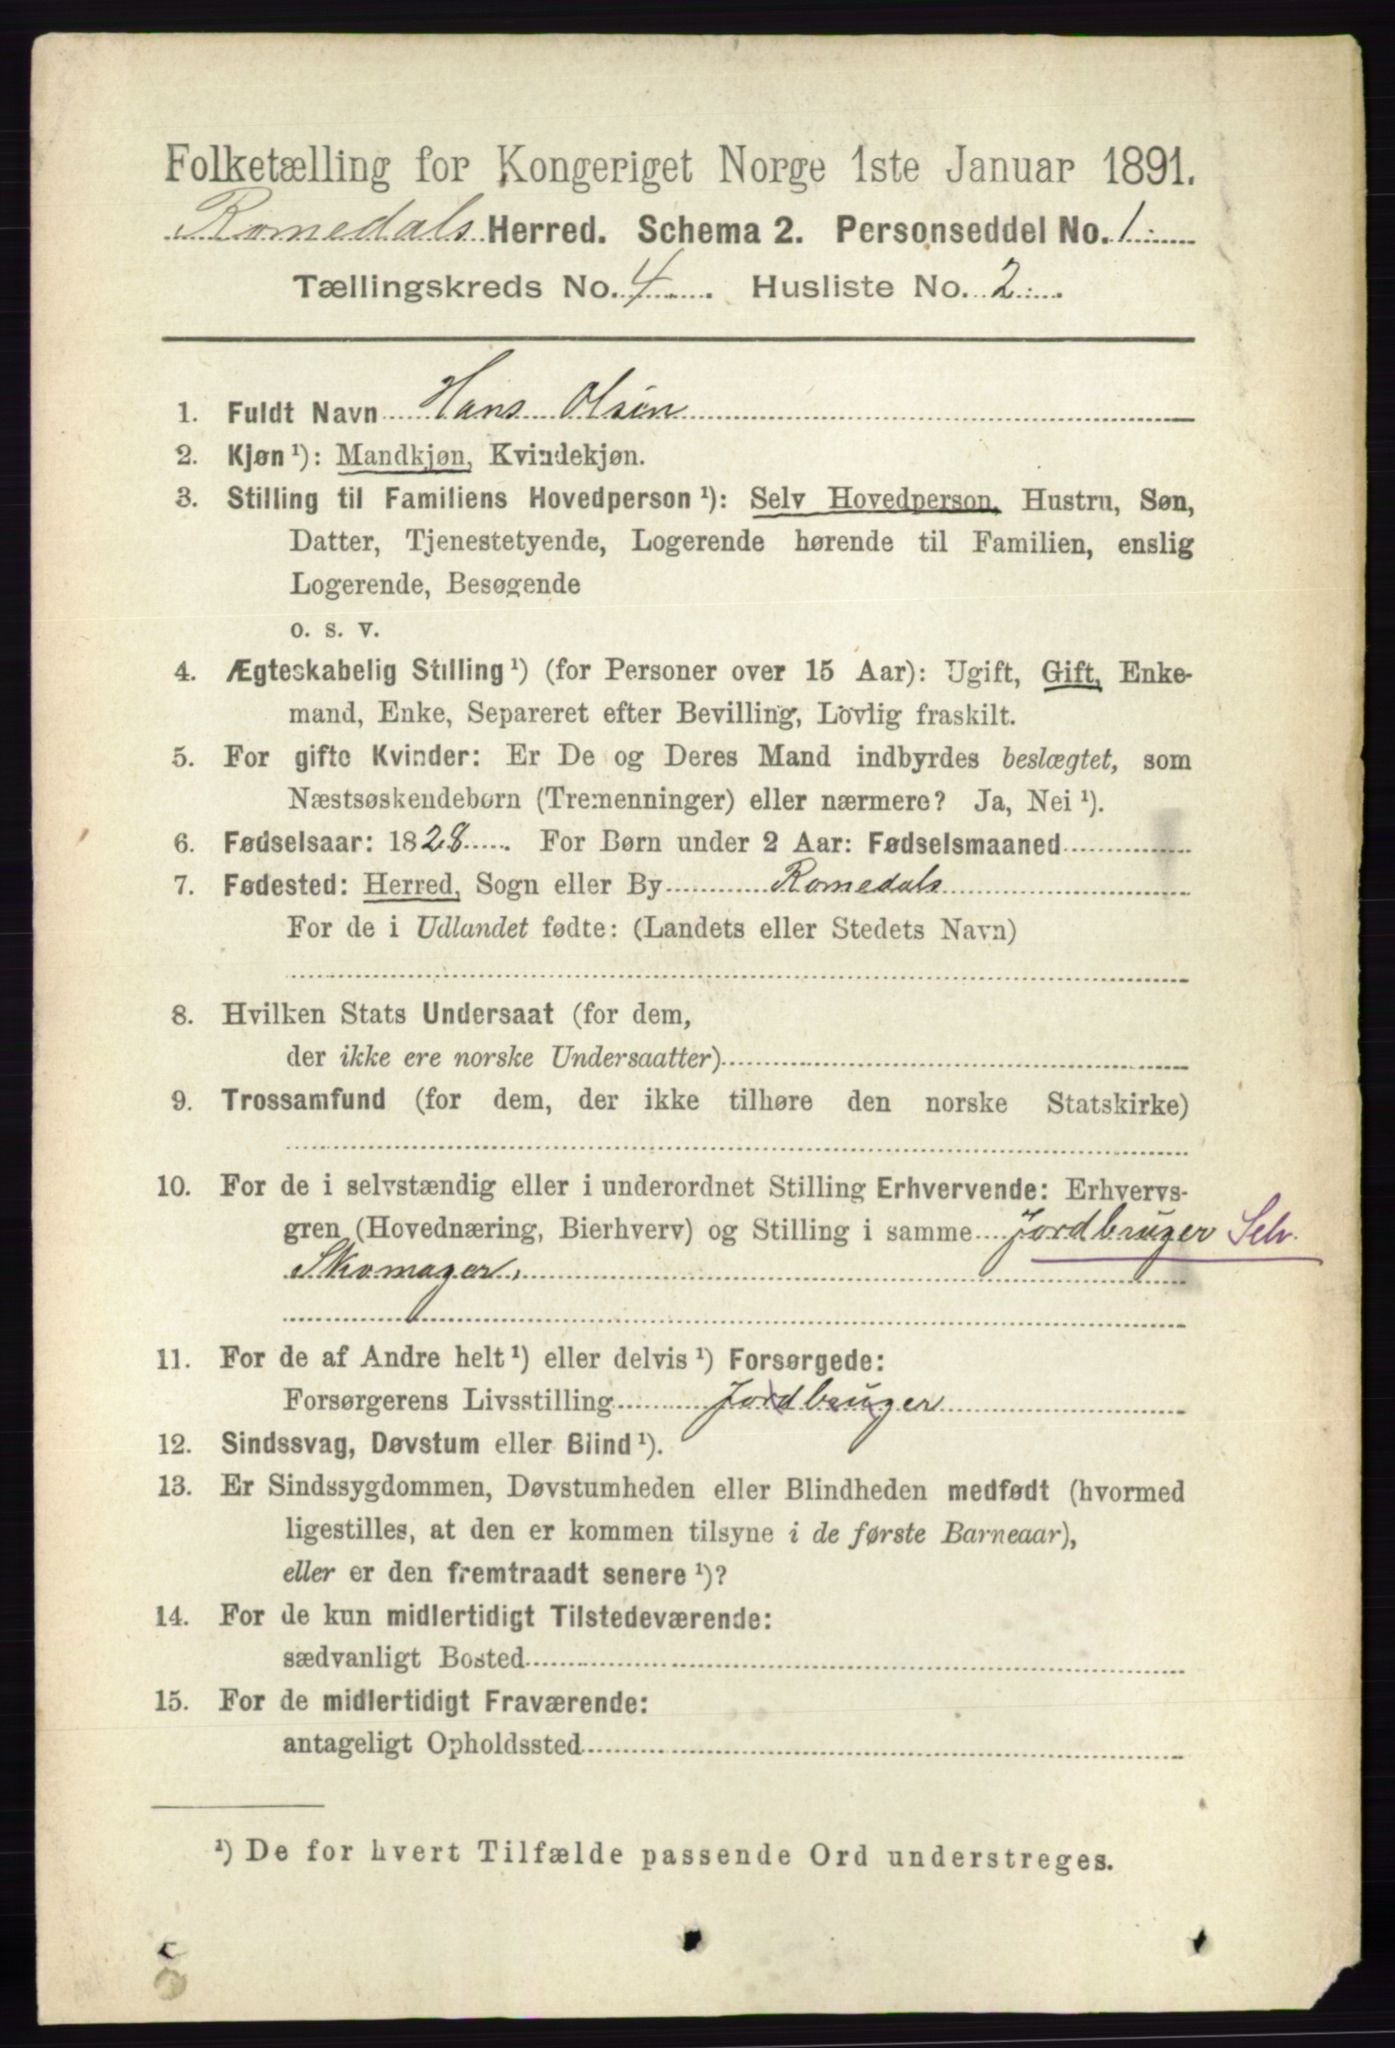 Folketælling for Kongeriget Norge 1ste Januar 1891.
Romedals Herred. Schema 2. Personseddel No. 1
Tællingskreds No. 4. Husliste No. 2.
1. Fuldt Navn Hans Olsen
2. Kjøn ¹): Mandkjøn, Kvindekjøn.
3. Stilling til Familiens Hovedperson ¹): Selv Hovedperson, Hustru, Søn,
Datter, Tjenestetyende, Logerende hørende til Familien, enslig
Logerende, Besøgende
o. s. v.
4. Ægteskabelig Stilling ¹) (for Personer over 15 Aar): Ugift, Gift, Enke-
mand, Enke, Separeret efter Bevilling, Lovlig fraskilt.
5. For gifte Kvinder: Er De og Deres Mand indbyrdes beslægtet, som
Næstsøskendebørn (Tremenninger) eller nærmere? Ja, Nei ¹).
6. Fødselsaar: 1828. For Børn under 2 Aar: Fødselsmaaned
7. Fødested: Herred, Sogn eller By Romedals
For de i Udlandet fødte: (Landets eller Stedets Navn)
8. Hvilken Stats Undersaat (for dem,
der ikke ere norske Undersaatter)
9. Trossamfund (for dem, der ikke tilhøre den norske Statskirke)
10. For de i selvstændig eller i underordnet Stilling Erhvervende: Erhvervs-
gren (Hovednæring, Bierhverv) og Stilling i samme Jordbruger Selv.
Skomager.
11. For de af Andre helt ¹) eller delvis ¹) Forsørgede:
Forsørgerens Livsstilling Jordbruger
12. Sindssvag, Døvstum eller Blind ¹).
13. Er Sindssygdommen, Døvstumheden eller Blindheden medfødt (hvormed
ligestilles, at den er kommen tilsyne i de første Barneaar),
eller er den fremtraadt senere ¹)?
14. For de kun midlertidigt Tilstedeværende:
sædvanligt Bosted
15. For de midlertidigt Fraværende:
antageligt Opholdssted
¹) De for hvert Tilfælde passende Ord understreges.